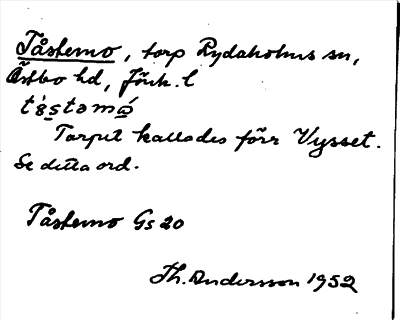 Tåstemo, torp Rydaholms sn,
Östbo hd, Jönk. l
tɵ̀stəmó
Torpet kallades förr Vysset.
Se detta ord.
Tåstemo Gs 20
Th. Andersson 1952